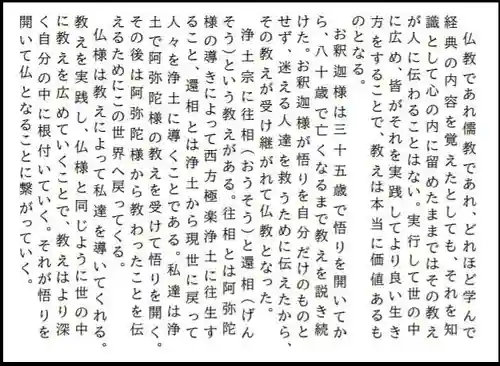 仏教であれ儒教であれ、どれほど学んで
経典の内容を覚えたとしても、それを知
識として心の内に留めたままではその教え
が人に伝わることはない。実行して世の中
に広め、皆がそれを実践してより良い生き
方をすることで、教えは本当に価値あるも
のとなる。
　お釈迦様は三十五歳で悟りを開いてか
ら、八十歳で亡くなるまで教えを説き続
けた。お釈迦様が悟りを自分だけのものと
せず、迷える人達を救うために伝えたから、
その教えが受け継がれて仏教となった。
　浄土宗に往相（おうそう）と還相（げん
そう）という教えがある。往相とは阿弥陀
様の導きによって西方極楽浄土に往生す
ること、還相とは浄土から現世に戻って
人々を浄土に導くことである。私達は浄
土で阿弥陀様の教えを受けて悟りを開く。
その後は阿弥陀様から教わったことを伝
えるためにこの世界へ戻ってくる。
　仏様は教えによって私達を導いてくれる。
教えを実践し、仏様と同じように世の中
に教えを広めていくことで、教えはより深
く自分の中に根付いていく。それが悟りを
開いて仏となることに繋がっていく。